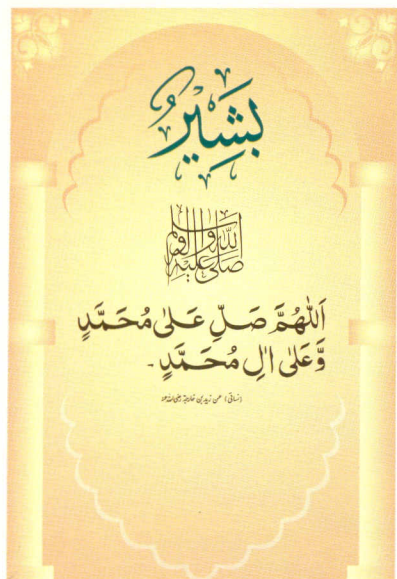 بَشِيْرٌ
صلى الله عليه وآله وسلم
اَللّٰهُمَّ صَلِّ عَلٰى مُحَمَّدٍ
وَّعَلٰى اٰلِ مُحَمَّدٍ۔
(نسائی) عن زید بن خارجة رضی اللہ عنہ